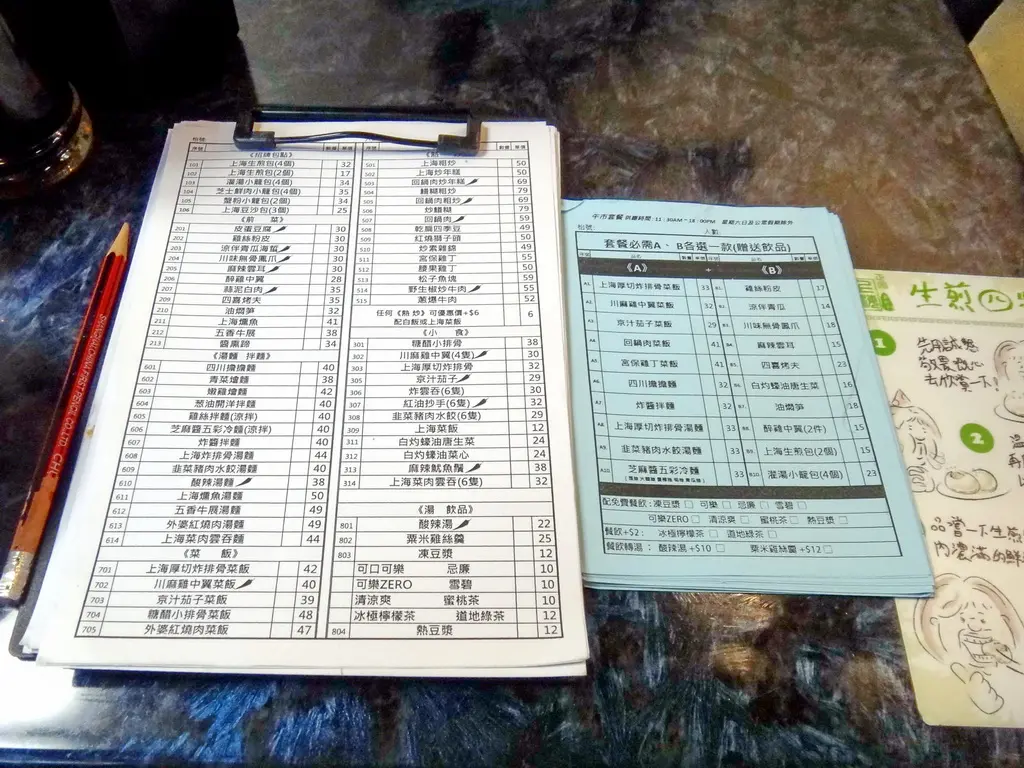 枱號:
序號 數量 單價
《招牌包點》
101 上海生煎包(4個) 32
102 上海生煎包(2個) 17
103 灌湯小籠包(4個) 34
104 芝士鮮肉小籠包(4個) 35
105 蟹粉小籠包(2個) 34
106 上海豆沙包(3個) 25
《前 菜》
201 皮蛋豆腐 30
202 雞絲粉皮 30
203 涼伴青瓜海蜇 30
204 川味無骨鳳爪 30
205 麻辣雲耳 30
206 醉雞中翼 28
207 蒜泥白肉 35
209 四喜烤夫 35
210 油燜筍 32
211 上海燻魚 41
212 五香牛展 38
213 醬熏蹄 34
《湯麵 拌麵》
601 四川擔擔麵 40
602 青菜煨麵 38
603 嫩雞煨麵 42
604 葱油開洋拌麵 40
605 雞絲拌麵(涼拌) 40
606 芝麻醬五彩冷麵(涼拌) 40
607 炸醬拌麵 40
608 上海炸排骨湯麵 44
609 韭菜豬肉水餃湯麵 40
610 酸辣湯麵 38
611 上海燻魚湯麵 50
612 五香牛展湯麵 49
613 外婆紅燒肉湯麵 49
614 上海菜肉雲吞麵 44
《菜 飯》
701 上海厚切炸排骨菜飯 42
702 川麻雞中翼菜飯 40
703 京汁茄子菜飯 39
704 糖醋小排骨菜飯 48
705 外婆紅燒肉菜飯 47
序號 數量 單價
501 上海粗炒 50
502 上海炒年糕 50
503 回鍋肉炒年糕 69
504 鱔糊粗炒 79
505 回鍋肉粗炒 69
506 炒鱔糊 79
507 回鍋肉 59
508 乾扁四季豆 49
509 紅燒獅子頭 50
510 炒素雞絲 49
511 宮保雞丁 55
512 腰果雞丁 50
513 松子魚塊 59
514 野生椒炒牛肉 59
515 蔥爆牛肉 52
任何《熱炒》可優惠價+$6
配白飯或上海菜飯 6
《小 食》
301 糖醋小排骨 38
302 川麻雞中翼(4隻) 30
303 上海厚切炸排骨 32
305 京汁茄子 29
306 炸雲吞(6隻) 30
307 紅油抄手(6隻) 32
308 韭菜豬肉水餃(6隻) 29
309 上海菜飯 12
311 白灼蠔油唐生菜 24
312 白灼蠔油菜心 24
313 麻辣魷魚鬚 38
314 上海菜肉雲吞(6隻) 32
《湯 飲品》
801 酸辣湯 22
802 粟米雞絲羹 25
803 凍豆漿 12
可口可樂 忌廉 10
可樂ZERO 雪碧 10
清涼爽 蜜桃茶 10
冰極檸檬茶 道地綠茶 12
804 熱豆漿 12
午市套餐 供應時間: 11:30AM~18:00PM 星期六日及公眾假期除外
枱號: 人數:
套餐必需A、B各選一款(贈送飲品)
《A》 + 《B》
A1. 上海厚切炸排骨菜飯 33 B1. 雞絲粉皮 17
A2. 川麻雞中翼菜飯 32 B2. 涼伴青瓜 14
A3. 京汁茄子菜飯 29 B3. 川味無骨鳳爪 18
A4. 回鍋肉菜飯 41 B4. 麻辣雲耳 15
A5. 宮保雞丁菜飯 41 B5. 四喜烤夫 23
A6. 四川擔擔麵 32 B6. 白灼蠔油唐生菜 16
A7. 炸醬拌麵 32 B7. 油燜筍 18
A8. 上海厚切炸排骨湯麵 33 B8. 醉雞中翼(2件) 15
A9. 韭菜豬肉水餃湯麵 33 B9. 上海生煎包(2個) 15
A10. 芝麻醬五彩冷麵 33 B10. 灌湯小籠包(4個) 23
配免費餐飲: 凍豆漿 □ 可樂 □ 忌廉 □ 雪碧 □
可樂ZERO □ 清涼爽 □ 蜜桃茶 □ 熱豆漿 □
餐飲+$2: 冰極檸檬茶 □ 道地綠茶 □
餐飲轉湯: 酸辣湯 +$10 □ 粟米雞絲羹 +$12 □
生煎四
1
2
品嘗一下生煎